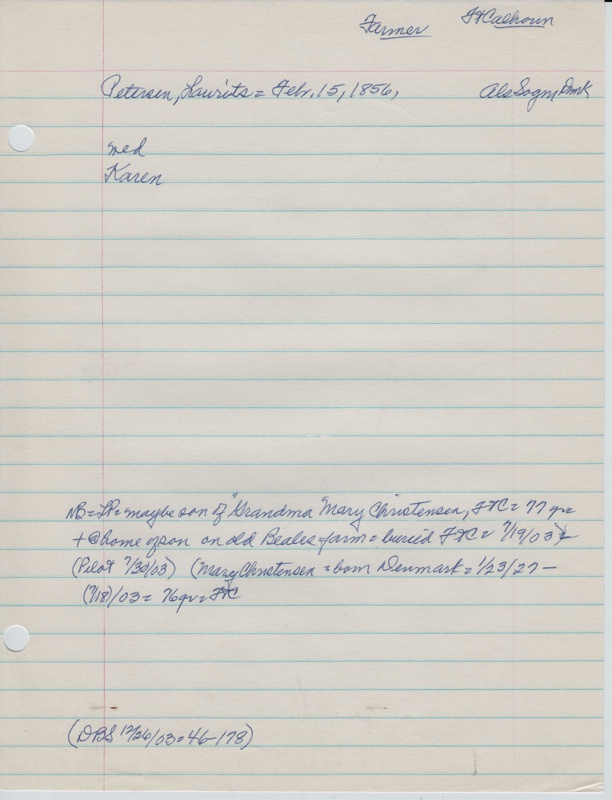 Farmer FtCalhoun
Petersen, Laurits = Febr. 15, 1856, Als Sogn, Dmk
wed
Karen
NB = LP = maybe son of "Grandma" Mary Christensen, FtC = 77 yr =
+ @ home of son on old Beales farm = buried FtC = 7/19/03
(Pilot 7/30/03) (Mary Christensen = born Denmark = 1/23/27 -
(7/18)/03 = 76 yr = FtC
(DBS 12/26/03 = 46-178)